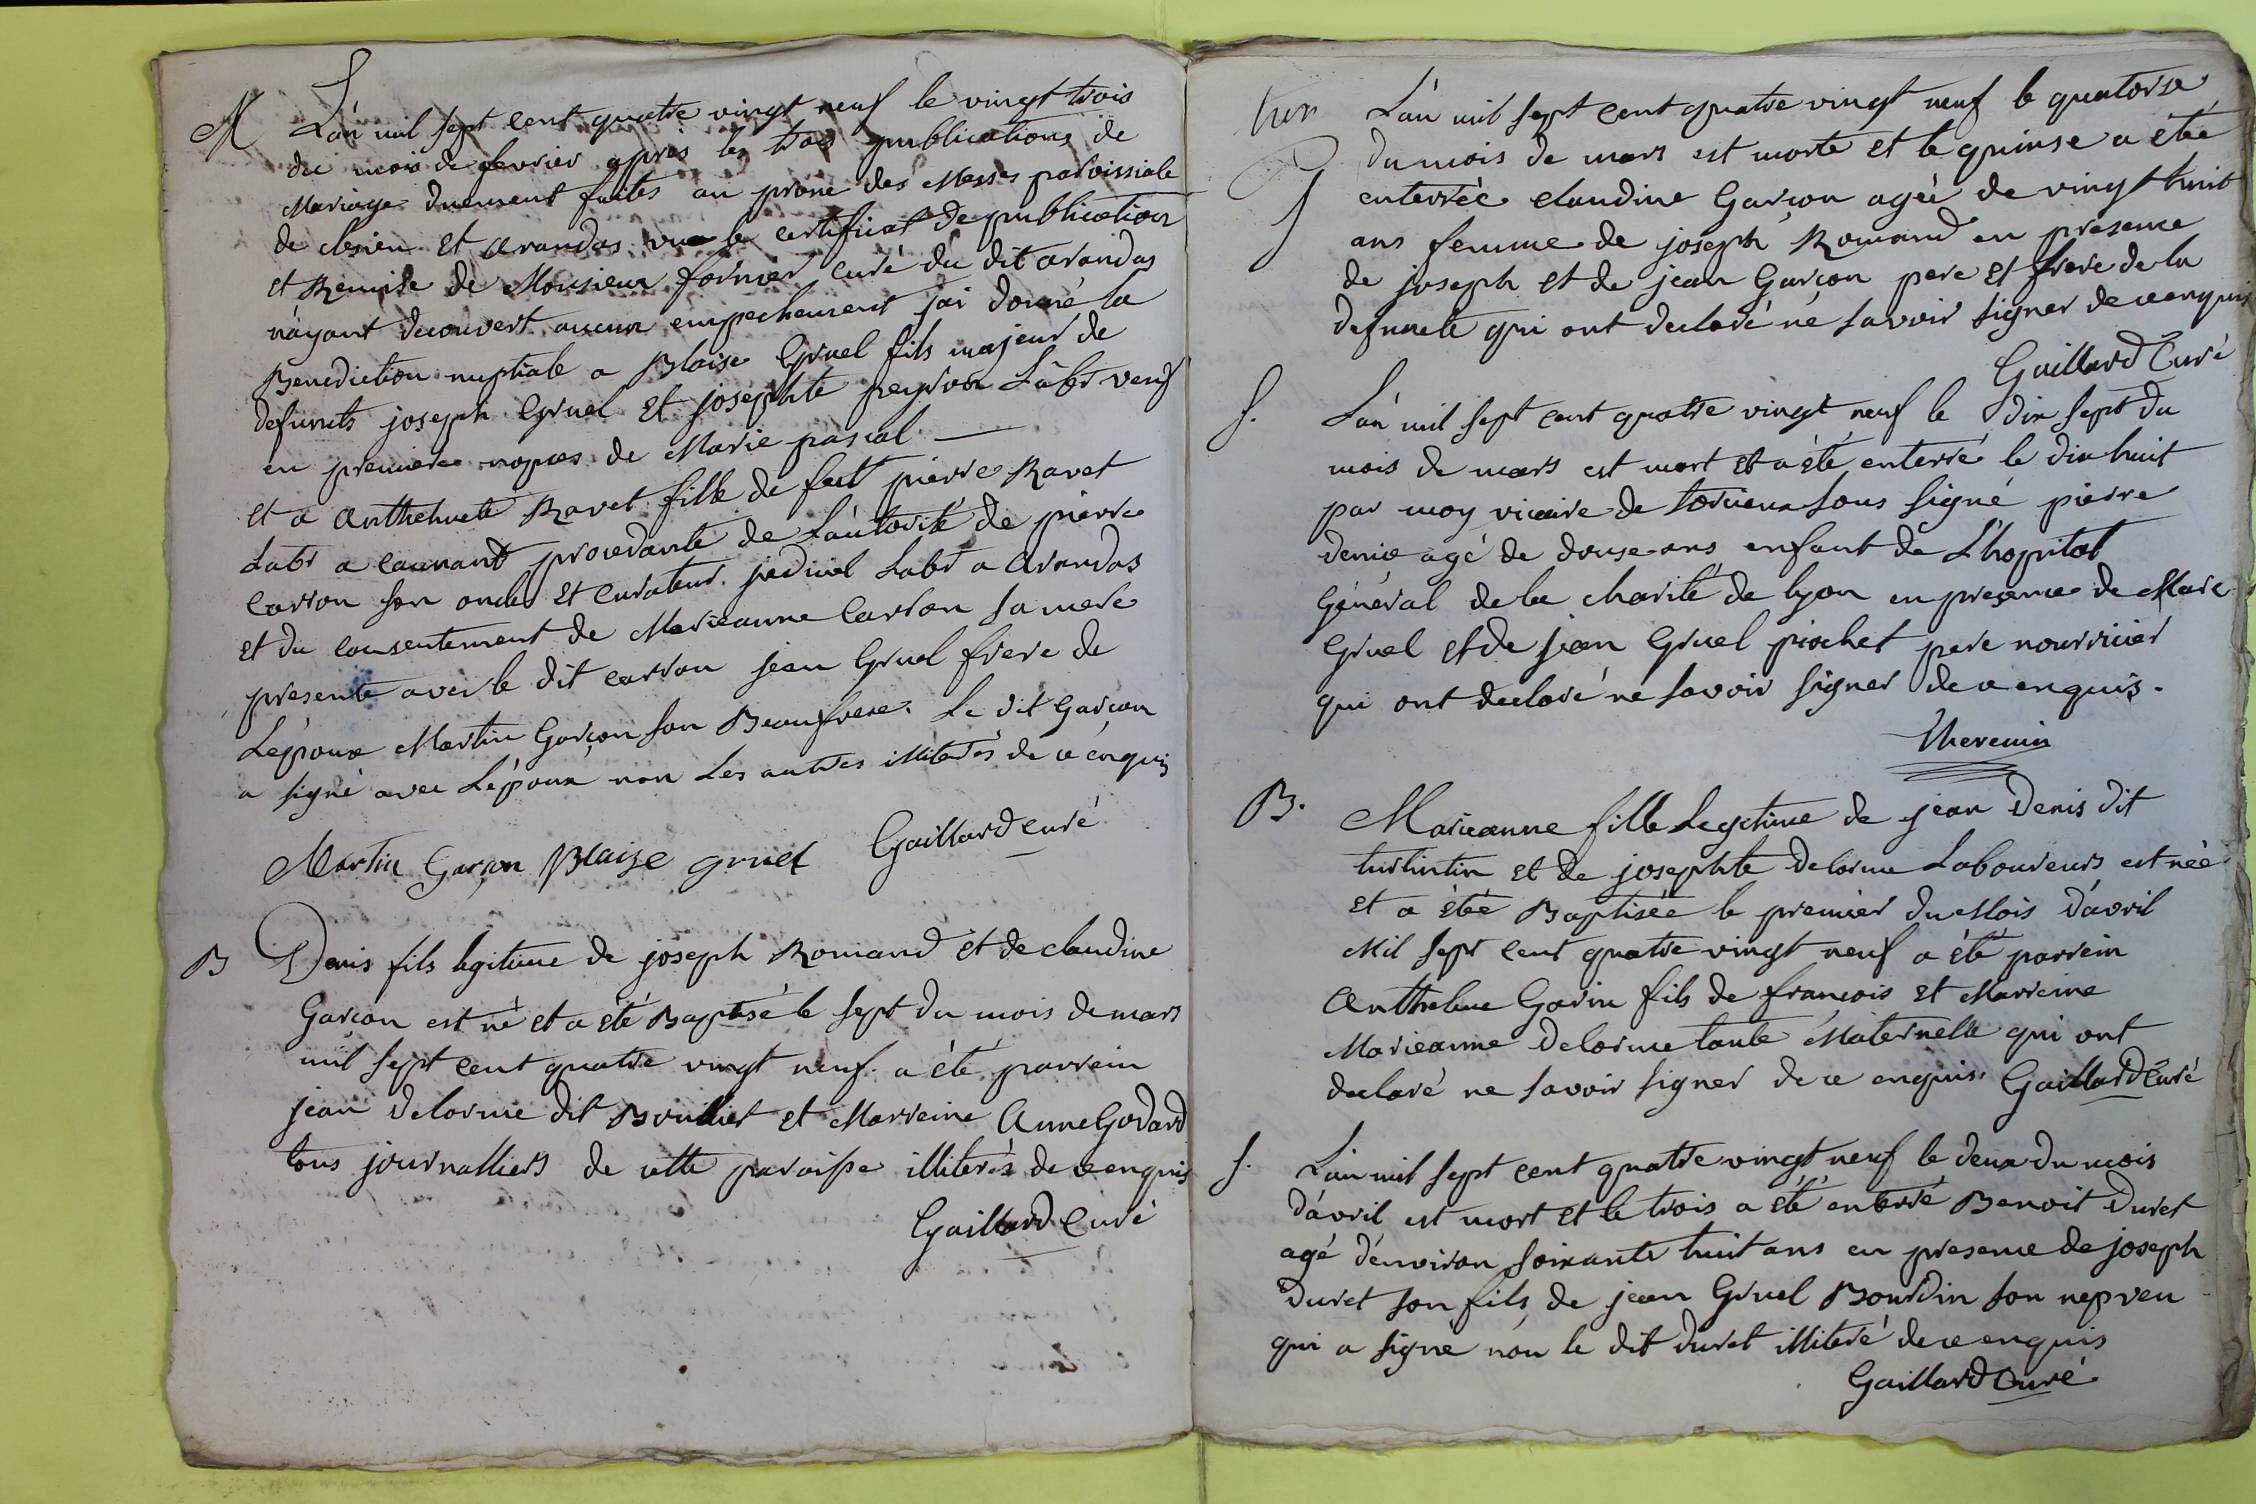 M L'an mil sept cent quatre vingt neuf le vingt trois
du mois de fevrier après les trois publications de
Mariage duement faites au prone des Messes paroissiale
de clesieu Et arandas vu le certificat de publication
et Remise de Monsieur fornier curé du dit arandas
n'ayant decouvert aucun empechement jai donné la
Benediction nuptiale a Blaise Gruel fils majeur de
defunts joseph Gruel Et josephte peyron Labr veuf
en premiere nopces de Marie pascal
et a Anthelmete Ravet fille de feu pierre Ravet
Labr a procedante de L'autorité de pierre
carron son oncle Et curateur Labr a Arandas
et du consentement de Marieanne Carron sa mere
presente avec le dit carron jean Gruel frere de
L'epoux Martin Garçon son Beaufrere. Le dit Garçon
a signé avec L'epoux non Les autres illiterés de ce enquis
Martin Garçon Blaise gruel Gaillard curé
B Denis fils legitime de joseph Romand et de claudine
Garçon est né et a été Baptisé le sept du mois de mars
mil sept cent quatre vingt neuf. a été parrein
jean delorme dit Boullier et Marreine Anne Godard
tous journalliers de cette paroisse illiterés de ce enquis
Gaillard Curé
L'an mil sept cent quatre vingt neuf le quatorse
du mois de mars est morte et le quinse a été
enterrée claudine Garçon agée de vingt huit
ans femme de joseph Romand en presence
de joseph et de jean Garçon pere et frere de la
defunete qui ont declaré né savoir signer de ce enquis
Gaillard Curé
S. L'an mil sept cent quatre vingt neuf le dix sept du
mois de mars est mort et a été enterré le dix huit
par moy vicaire de torcieux sous signé pierre
denis agé de douse ans enfant de L'hopital
Général de la charité de lyon en presence de Marc
Gruel et de jean Gruel piochet pere nourricier
qui ont declaré ne savoir signer de ce enquis.
Therenin
B. Marieanne fille Legitime de jean Denis dit
turlintin et de josephte delorme Laboureurs est née
et a été Baptisée le premier du Mois d'avril
Mil sept cent quatre vingt neuf a été parrein
Anthelme Garin fils de françois et Marreine
Marieanne delorme tante Maternelle qui ont
declaré ne savoir signer de ce enquis. Gaillard Curé
S. L'an mil sept cent quatre vingt neuf le deux du mois
d'avril est mort et le trois a été enterré Benoit duret
agé d'environ soixante huit ans en presence de joseph
duret son fils de jean Gruel Bourdin son nepveu
qui a signé non le dit duret illiteré de ce enquis
Gaillard Curé